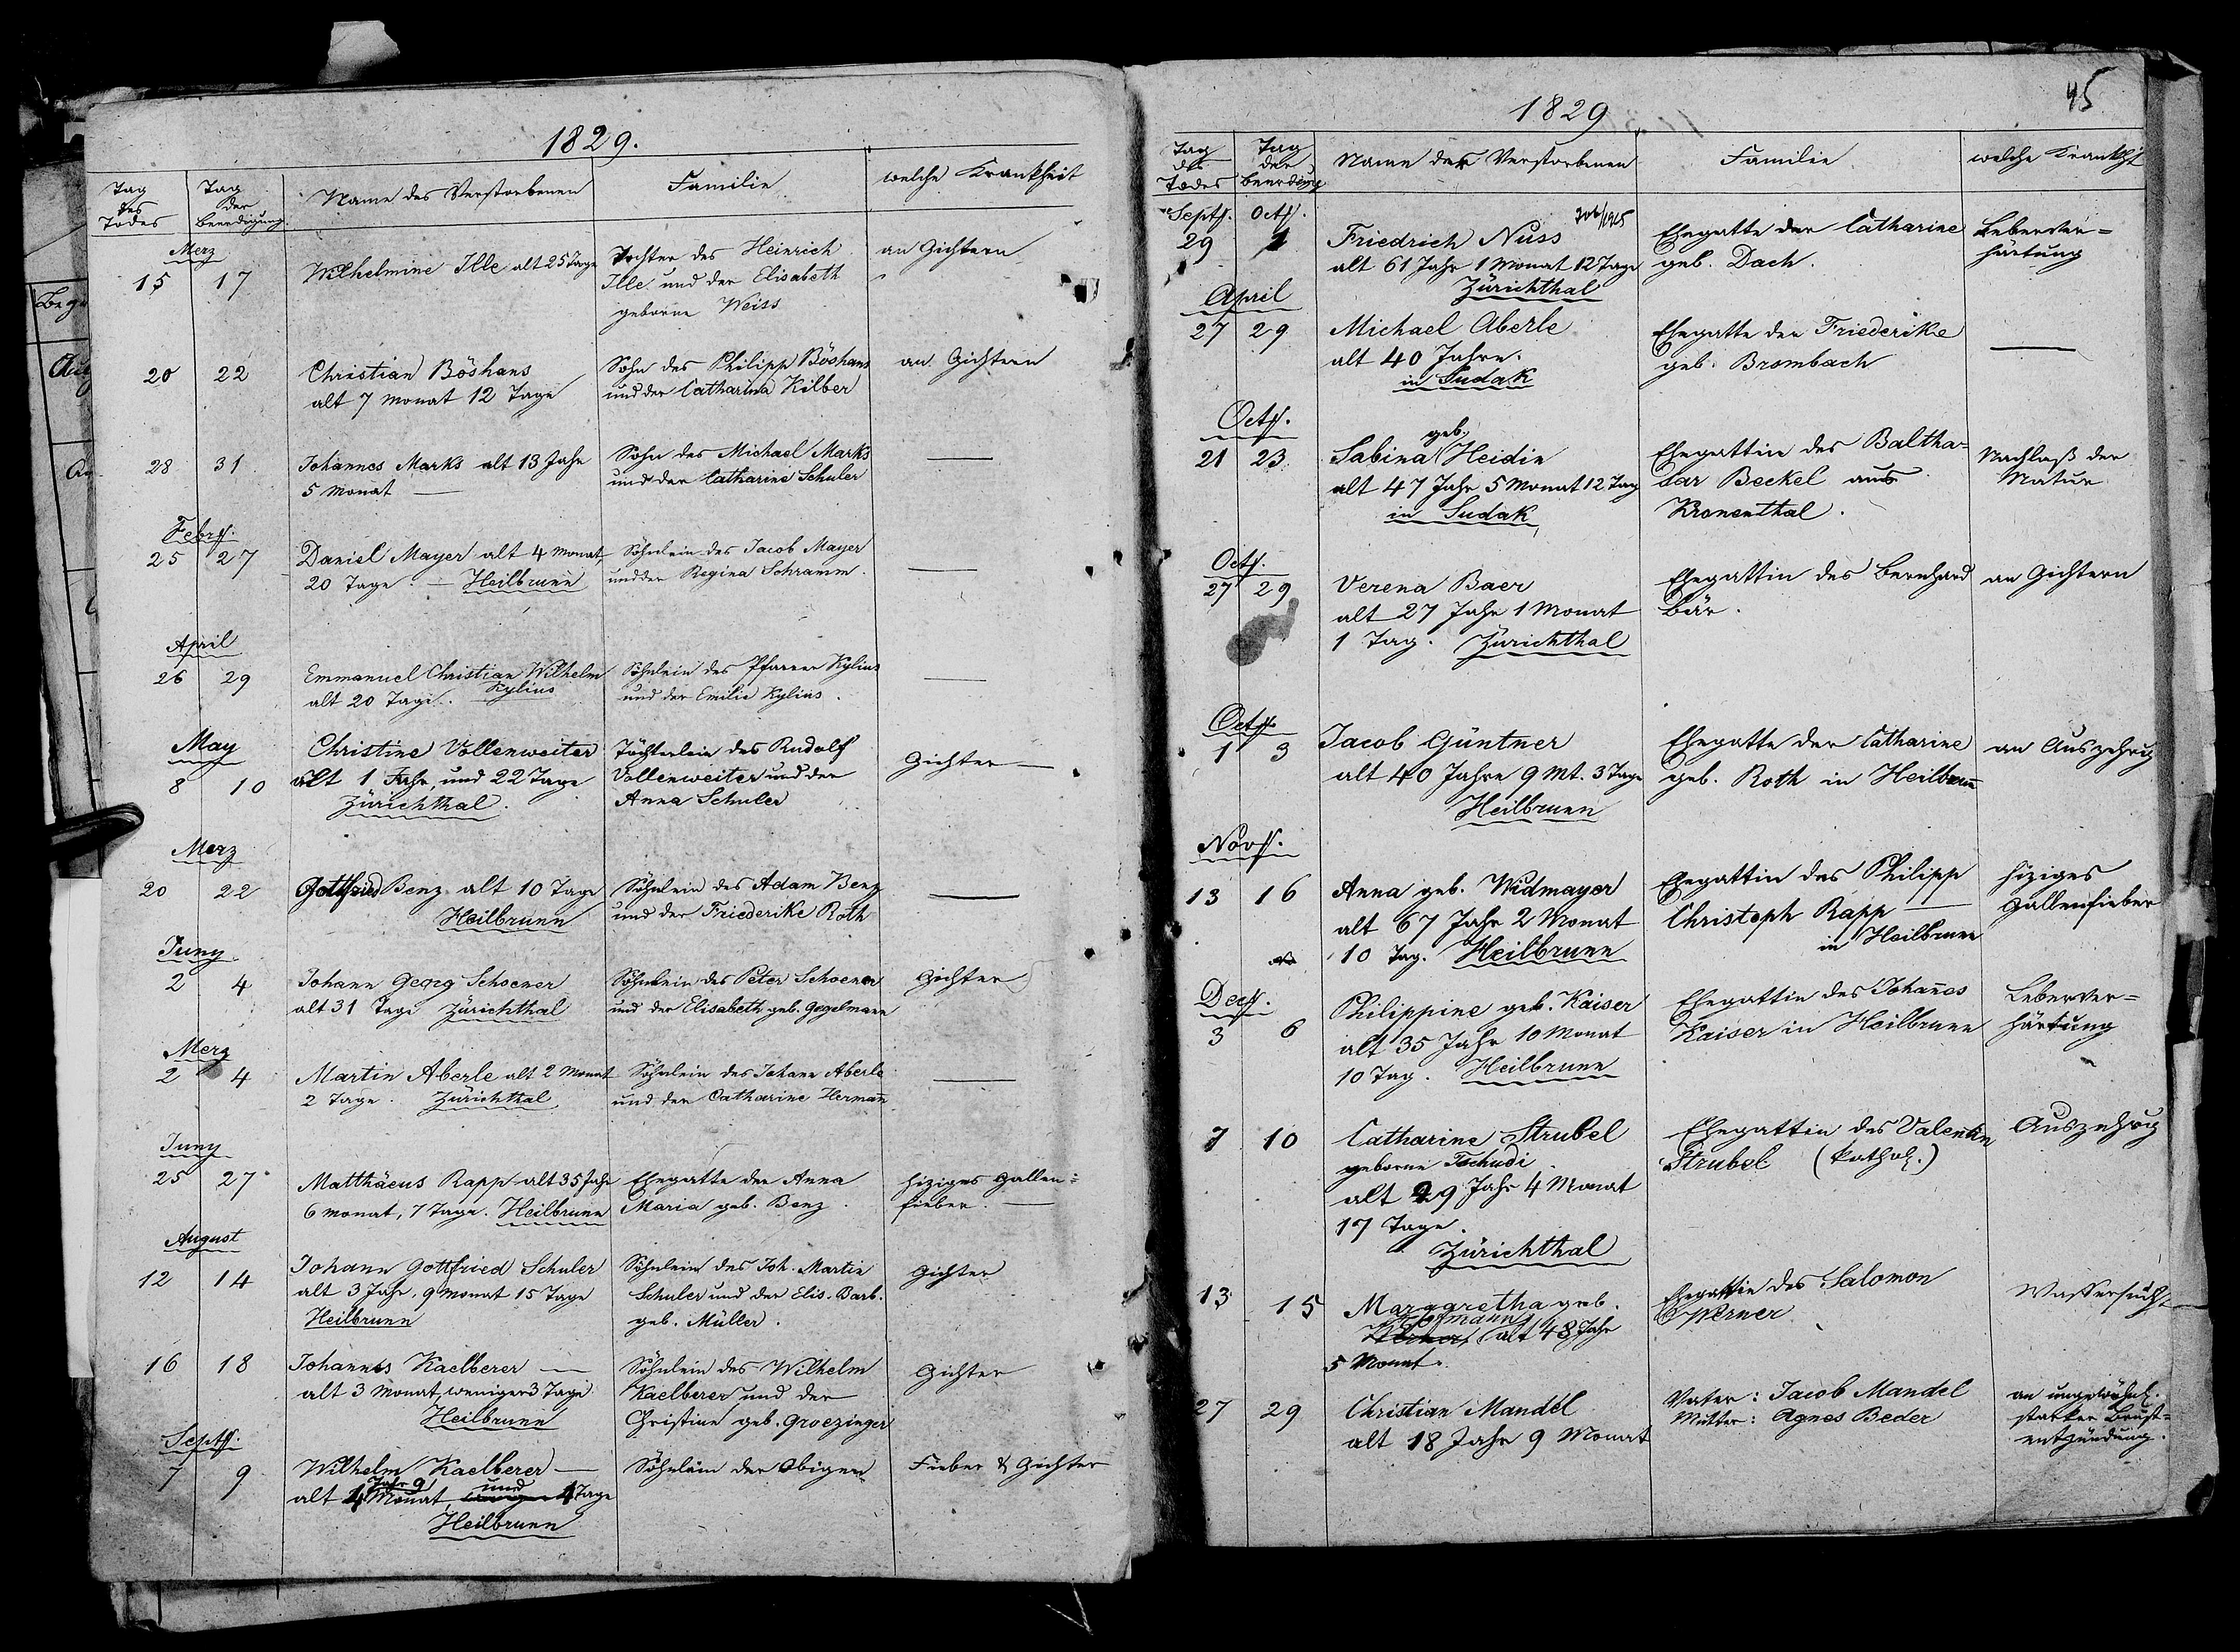 1829.
Tag des Todes
Tag der Beerdigung.
Name des Verstorbenen
Familie
welche Krankheit
Merz
15 17 Wilhelmine Ille alt 25 Tage
Tochter des Heinrich
Ille und der Elisabeth
geborne Weiss
an Gichtern
20 22 Christian Böshans
alt 7 Monat 12 Tage
Sohn des Philipp Böshans
und der Catharina Kilber
an Gichtern
28 31 Johannes Marks alt 13 Jahr
5 Monat —
Sohn des Michael Marks
und der Catharine Schuler
—
Febr.
25 27 Daniel Mayer alt 4 Monat,
20 Tage. — Heilbrunn
Söhnlein des Jacob Mayer
und der Regina Schramm.
—
April
26 29 Emmanuel Christian Wilhelm
Kylius
alt 20 Tage.
Söhnlein des Pfarrer Kylius
und der Emilie Kylius.
—
May
8 10 Christine Vollenweiter
alt 1 Jahr, und 22 Tage
Zürichthal.
Töchterlein des Rudolf
Vollenweiter und der
Anna Schuler
Gichter —
Merz
20 22 Gottfried Benz alt 10 Tage
Heilbrunn
Söhnlein des Adam Benz
und der Friederike Roth
—
Juny
2 4 Johann Georg Schoener
alt 31 Tage Zürichthal
Söhnlein des Peter Schoener
und der Elisabeth geb. Gegelmann
Gichter
Merz
2 4 Martin Aberle alt 2 Monat
2 Tage. Zürichthal
Söhnlein des Johann Aberle
und der Catharine Hermañ
—
Juny
25 27 Matthäeus Rapp alt 35 Jahr
6 Monat, 7 Tage. Heilbrunn
Ehegatte der Anna
Maria geb. Benz.
hiziges Gallen=
fieber. —
August
12 14 Johann Gottfried Schuler
alt 3 Jahr, 9 Monat 15 Tage
Heilbrunn
Söhnlein des Joh. Martin
Schuler und der Elis. Barb.
geb. Müller.
Gichter
16 18 Johannes Kaelberer —
alt 3 Monat weniger 3 Tage
Heilbrunn
Söhnlein des Wilhelm
Kaelberer und der
Christine geb. Groezinger
Gichter
Sept.
7 9 Wilhelm Kaelberer —
alt 1 Jahr 9 Monat, und 4 Tage
Heilbrunn
Söhnlein der Obigen
Fieber & Gichter
45
1829
Tag des Todes
Tag der Beerdigung
Name der Verstorbenen
Familie
welche Krankht
Sept. Oct.
29 1 Friedrich Nuss
alt 61 Jahr 1 Monat 12 Tage
Zürichthal
Ehegatte der Catharine
geb. Dach.
Leberver=
härtung
April
27 29 Michael Aberle
alt 40 Jahre.
in Sudak
Ehegatte der Friederike
geb. Brombach
—
Oct.
21 23 Sabina geb. Heidin
alt 47 Jahr 5 Monat 12 Tag
in Sudak
Ehegattin des Baltha=
sar Beckel aus
Kronenthal.
Nachlaß der
Natur
Oct.
27 29 Verena Baer
alt 27 Jahr 1 Monat
1 Tag. Zürichthal
Ehegattin des Bernhard
Bär.
an Gichtern
Oct.
1 3 Jacob Güntner
alt 40 Jahre 9 Mt. 3 Tage
Heilbrunn
Ehegatte der Catharine
geb. Roth in Heilbruñ
an Auszehrug
Nov.
13 16 Anna geb. Widmayer
alt 67 Jahr 2 Monat
10 Tag. Heilbrunn
Ehegattin des Philipp
Christoph Rapp —
in Heilbrunn
hiziges
Gallenfieber
Dec.
3 6 Philippine geb. Kaiser
alt 35 Jahr 10 Monat
10 Tag. Heilbrunn
Ehegattin des Johañes
Kaiser in Heilbrunn
Leberver=
härtung
7 10 Catharine Strubel
geborne Tschudi
alt 29 Jahr 4 Monat
17 Tage.
Zürichthal
Ehegattin des Valentin
Strubel (kathol.)
Auszehrug
13 15 Margaretha geb.
alt 48 Jahr
5 Monat.
Ehegattin des Salomon
Werner
Wassersucht
27 29 Christian Mandel
alt 18 Jahr 9 Monat
Vater: Jacob Mandel
Mutter: Agnes Beder
an ungewöhnl.
starker Brust=
entzündung.